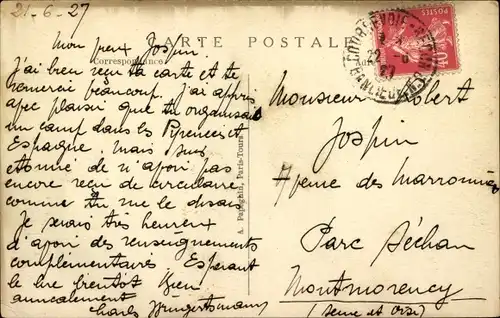 21-6-27
CARTE POSTALE
Correspondance
Mon vieux Jospin.
J'ai bien reçu ta carte et te
remercie beaucoup. J'ai appris
avec plaisir que tu organisais
un camp dans les Pyrénées et
Espagne. Mais suis
étonné de n'avoir pas
encore reçu de circulaire
comme tu me le disais
Je serais très heureux
d'avoir des renseignements
complémentaires. Espérant
te lire bientôt Bien
amicalement
Charles
A. Papeghin, Paris-Tours
POSTES
COURBEVOIE
22
27
Monsieur Robert
Jospin
Avenue des Marronniers
Parc Séchan
Montmorency
(Seine et Oise)